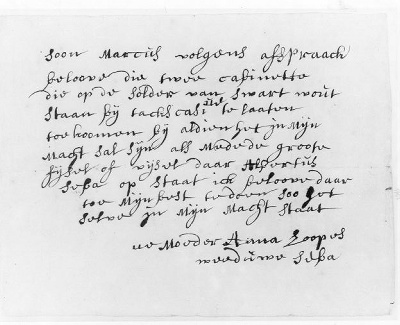 soon Marcus volgens afspraack
beloove die twee cabinette
die op de solder van swart wout
staan by tachscasi te laaten
toekoomen by aldien het in Mijn
Macht sal sijn als Medede groote
vijsel of vijsel daar Albertus
seba op staat ick beloove daar
toe Mijn best te doen soo het
selve in Mijn Macht staat
ue Moeder Anna Loopes
weeduwe seba